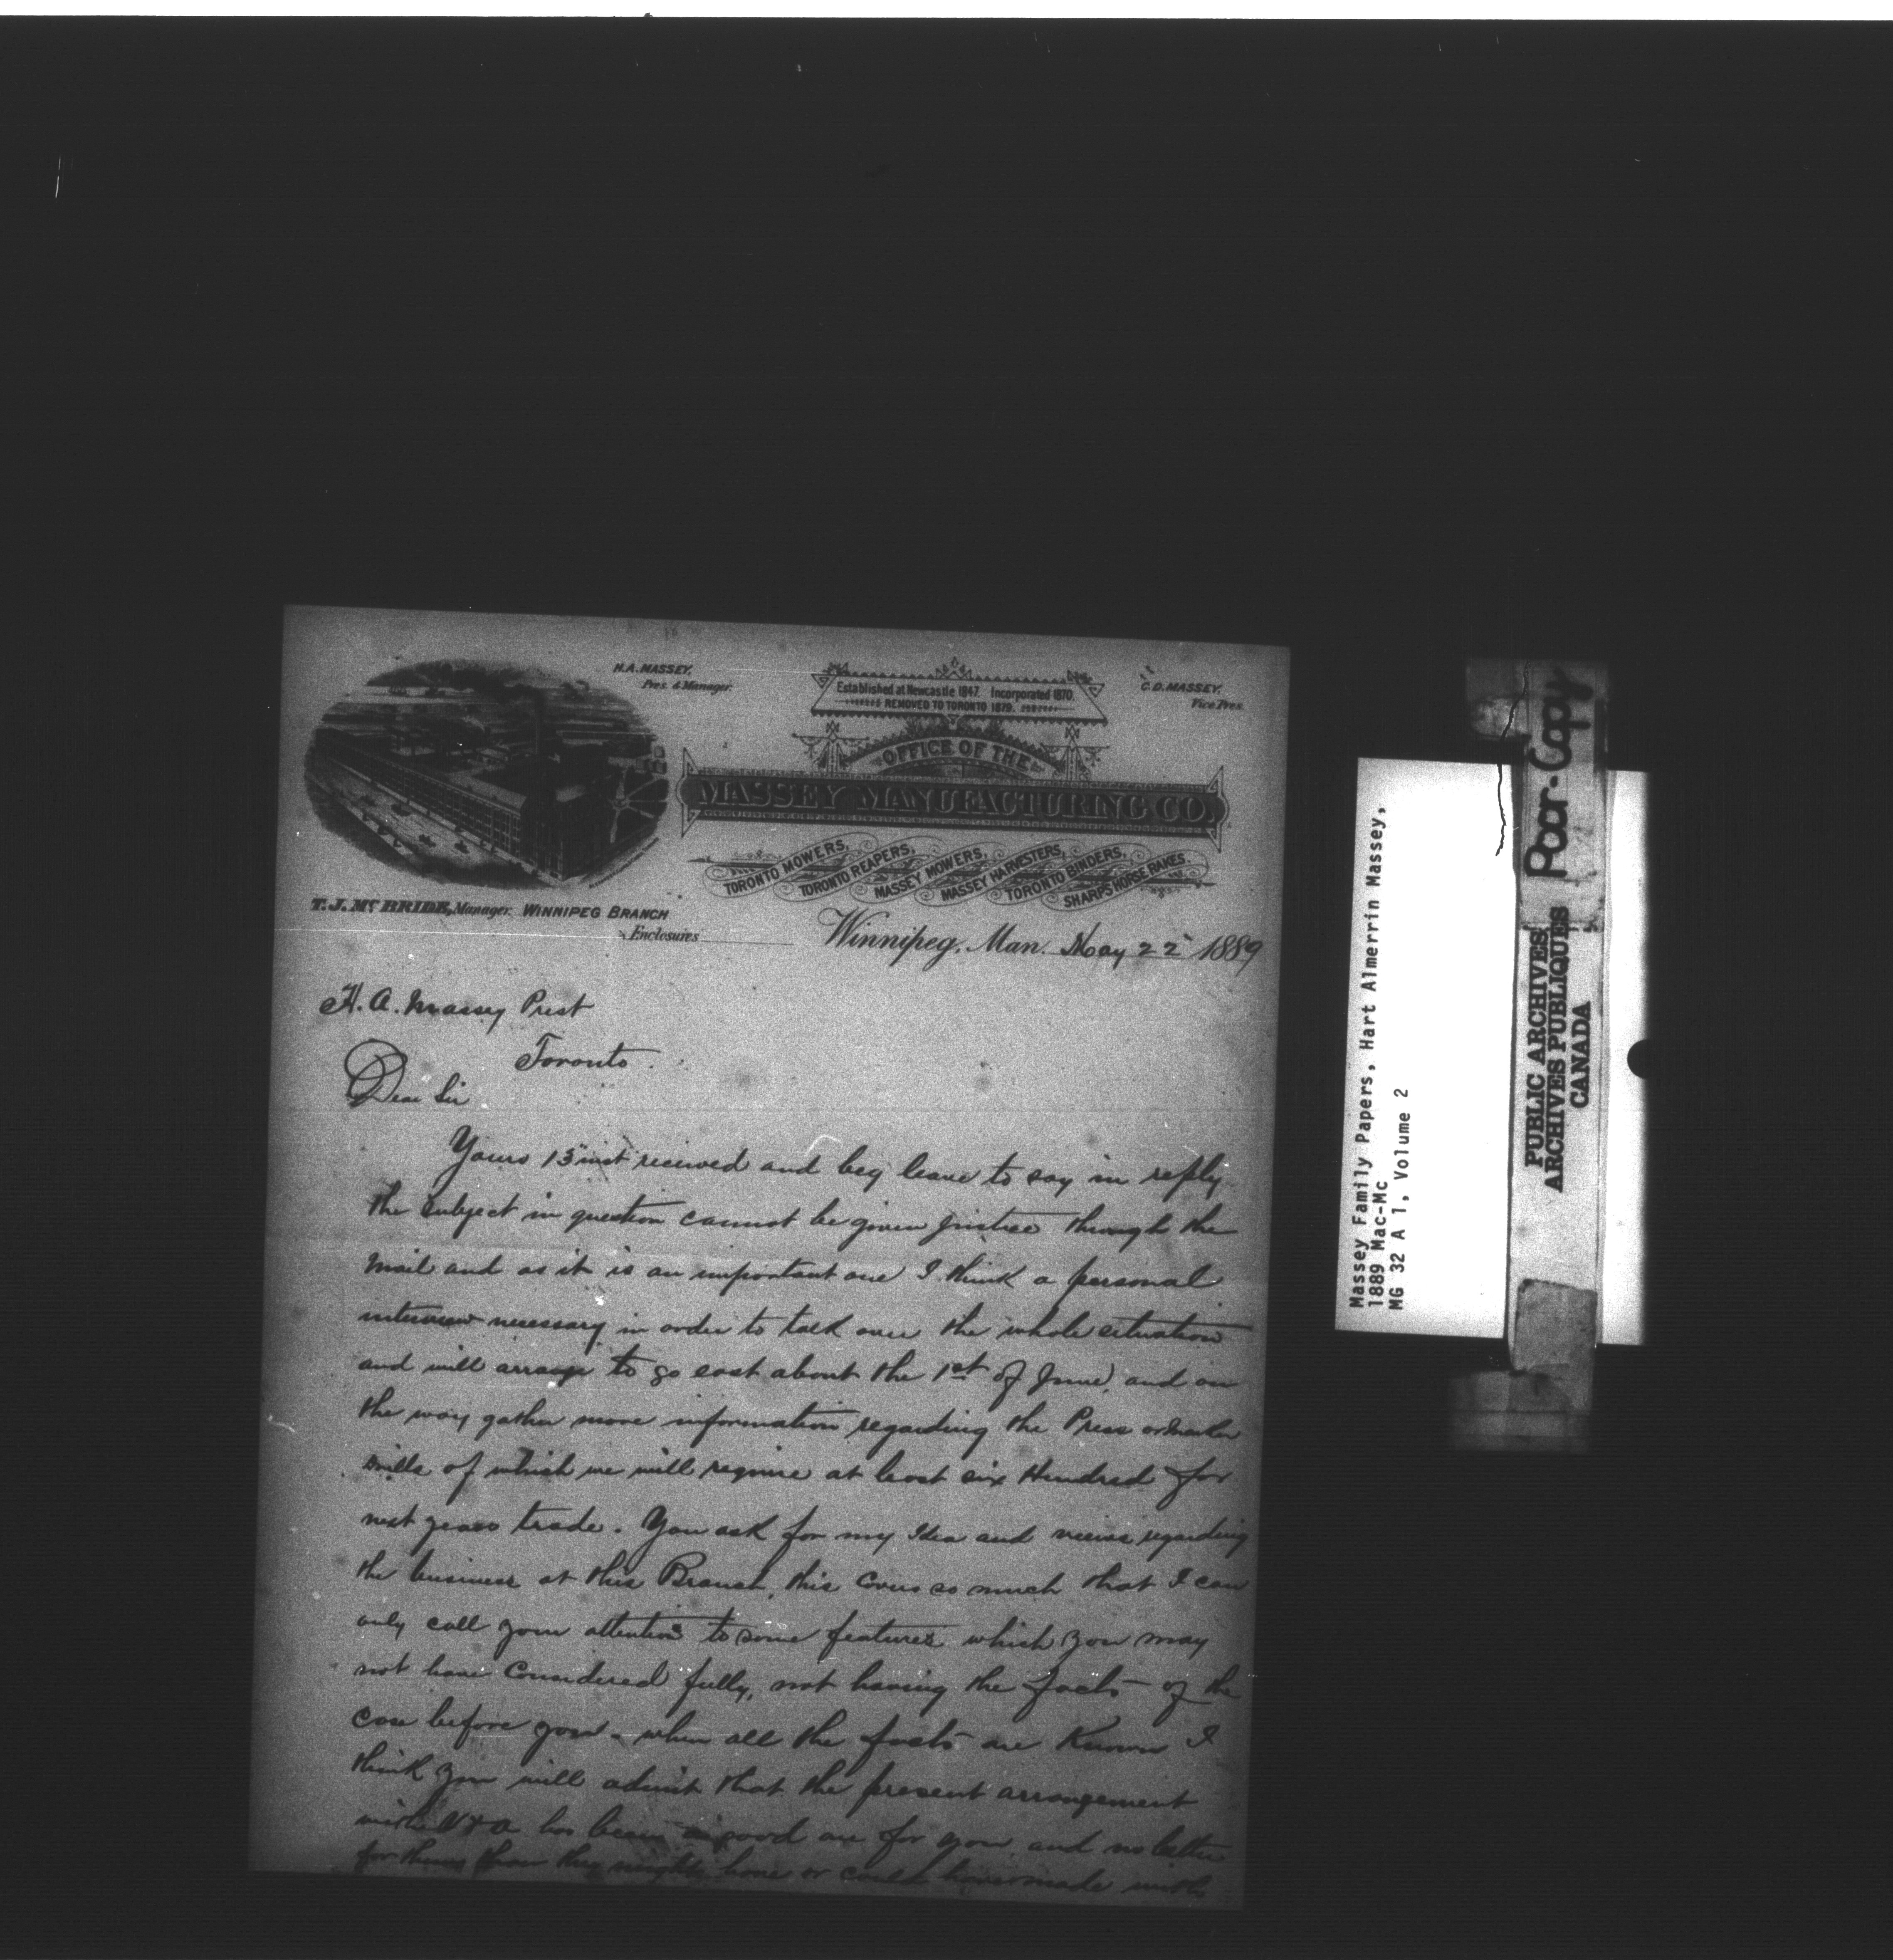 H.A. MASSEY,
Pres. & Manager.
Established at Newcastle 1847. Incorporated 1870.
REMOVED TO TORONTO 1879.
C.D. MASSEY,
Vice Pres.
OFFICE OF THE
MASSEY MANUFACTURING CO.
TORONTO MOWERS,
TORONTO REAPERS,
MASSEY MOWERS,
MASSEY HARVESTERS,
TORONTO BINDERS,
SHARPS HORSE RAKES.
T.J. McBRIDE, Manager. WINNIPEG BRANCH
Enclosures
Winnipeg, Man. May 22 1889
H. A. Massey Prest
Toronto.
Dear Sir
Yours 13 inst received and beg leave to say in reply
the subject in question cannot be given justice through the
mail and as it is an important one I think a personal
interview necessary in order to talk over the whole situation
and will arrange to go east about the 1st of June, and on
the way gather more information regarding the Press
drills of which we will require at least six Hundred for
next years trade. You ask for my Idea and views regarding
the business at this Branch, this covers so much that I can
only call your attention to some features which you may
not have Considered fully, not having the facts of the
case before you - when all the facts are Known I
think you will admit that the present arrangement
with has been a good one for you, and no better
for them than they might have or could have made with
Massey Family Papers, Hart Almerrin Massey,
1889 Mac-Mc
MG 32 A 1, Volume 2
Poor-Copy
PUBLIC ARCHIVES
ARCHIVES PUBLIQUES
CANADA